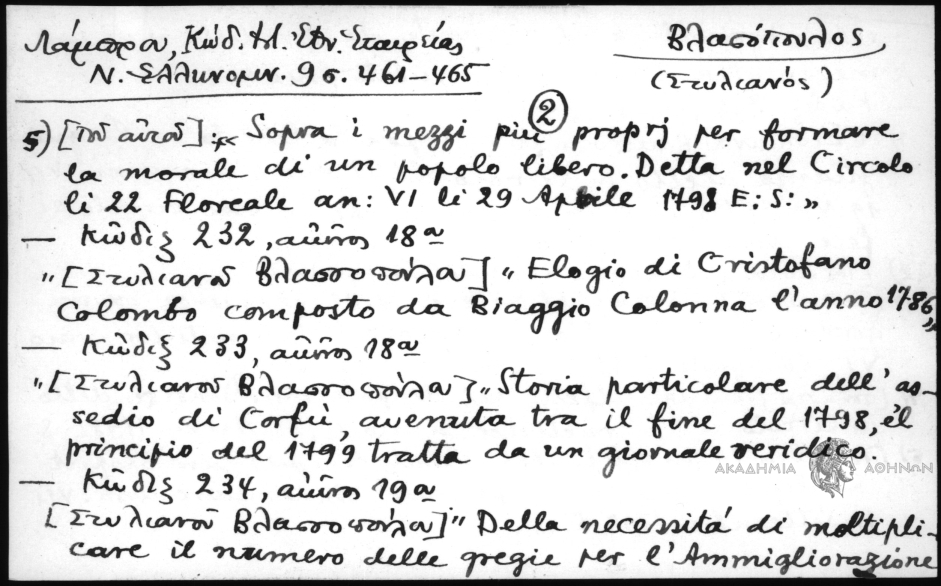 Λάμπρου, Κώδ. Ἱστ. Ἐθν. Ἑταιρείας
Ν. Ἑλληνομν. 9 σ. 461-465
Βλασόπουλος
(Στυλιανός)
②
5) [τοῦ αὐτοῦ]: « Sopra i mezzi piú proprj per formare
la morale di un popolo libero. Detta nel Circolo
li 22 Floreale an: VI li 29 Aprile 1798 E: S: »
— Κῶδιξ 232, αἰῶνος 18ου
" [Στυλιανοῦ Βλασσοπούλου] " Elogio di Cristofano
Colombo composto da Biaggio Colonna l'anno 1786 "
— Κῶδιξ 233, αἰῶνος 18ου
" [Στυλιανοῦ Βλασσοπούλου] " Storia particolare dell' as-
sedio di Corfù, avenuta tra il fine del 1798, él
principio del 1799 tratta da un giornale veridico.
ΑΚΑΔΗΜΙΑ ΑΘΗΝΩΝ
— Κῶδιξ 234, αἰῶνος 19ου
[Στυλιανοῦ Βλασσοπούλου] " Della necessitá di moltipli-
care il numero delle gregie per l'Ammigliorazione